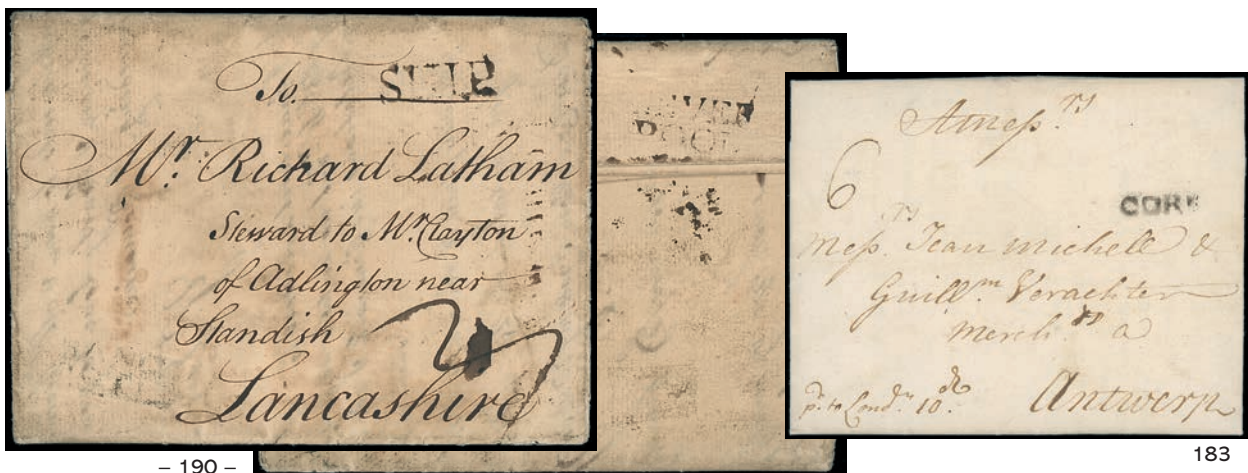 To. SHIP
Mr. Richard Latham
Steward to Mr. Clayton
of Adlington near
Standish
Lancashire
– 190 –
POOL
6
CORK
Mess.rs Jean Michell &
Guill.m Verachter
Merch.ts a
Antwerp
p.d to Lond.n 10.d
183